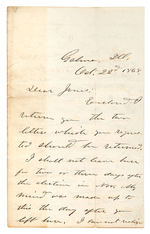 Galena, Ill.
Oct. 22d 1868
Dear Jones:
Enclosed I
return you the two
letters which you reques
ted should be returned.
I shall not leave here
for two or three days after
the election in Nov. My
mind was made up to
this the day after you
left here. I am not